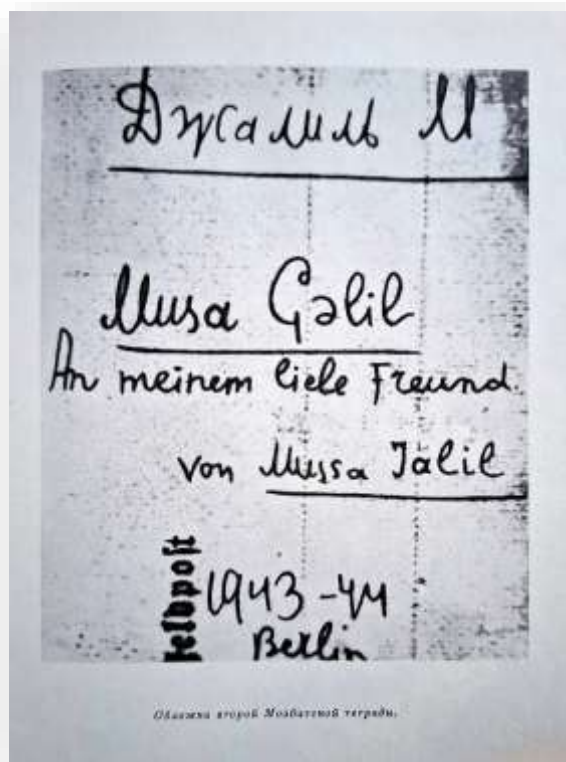 Джалиль М
Musa Çəlil
An meinem liebe Freund.
von Mussa Jalil
Feldpost
1943-44
Berlin
Обложка второй Моабитской тетради.